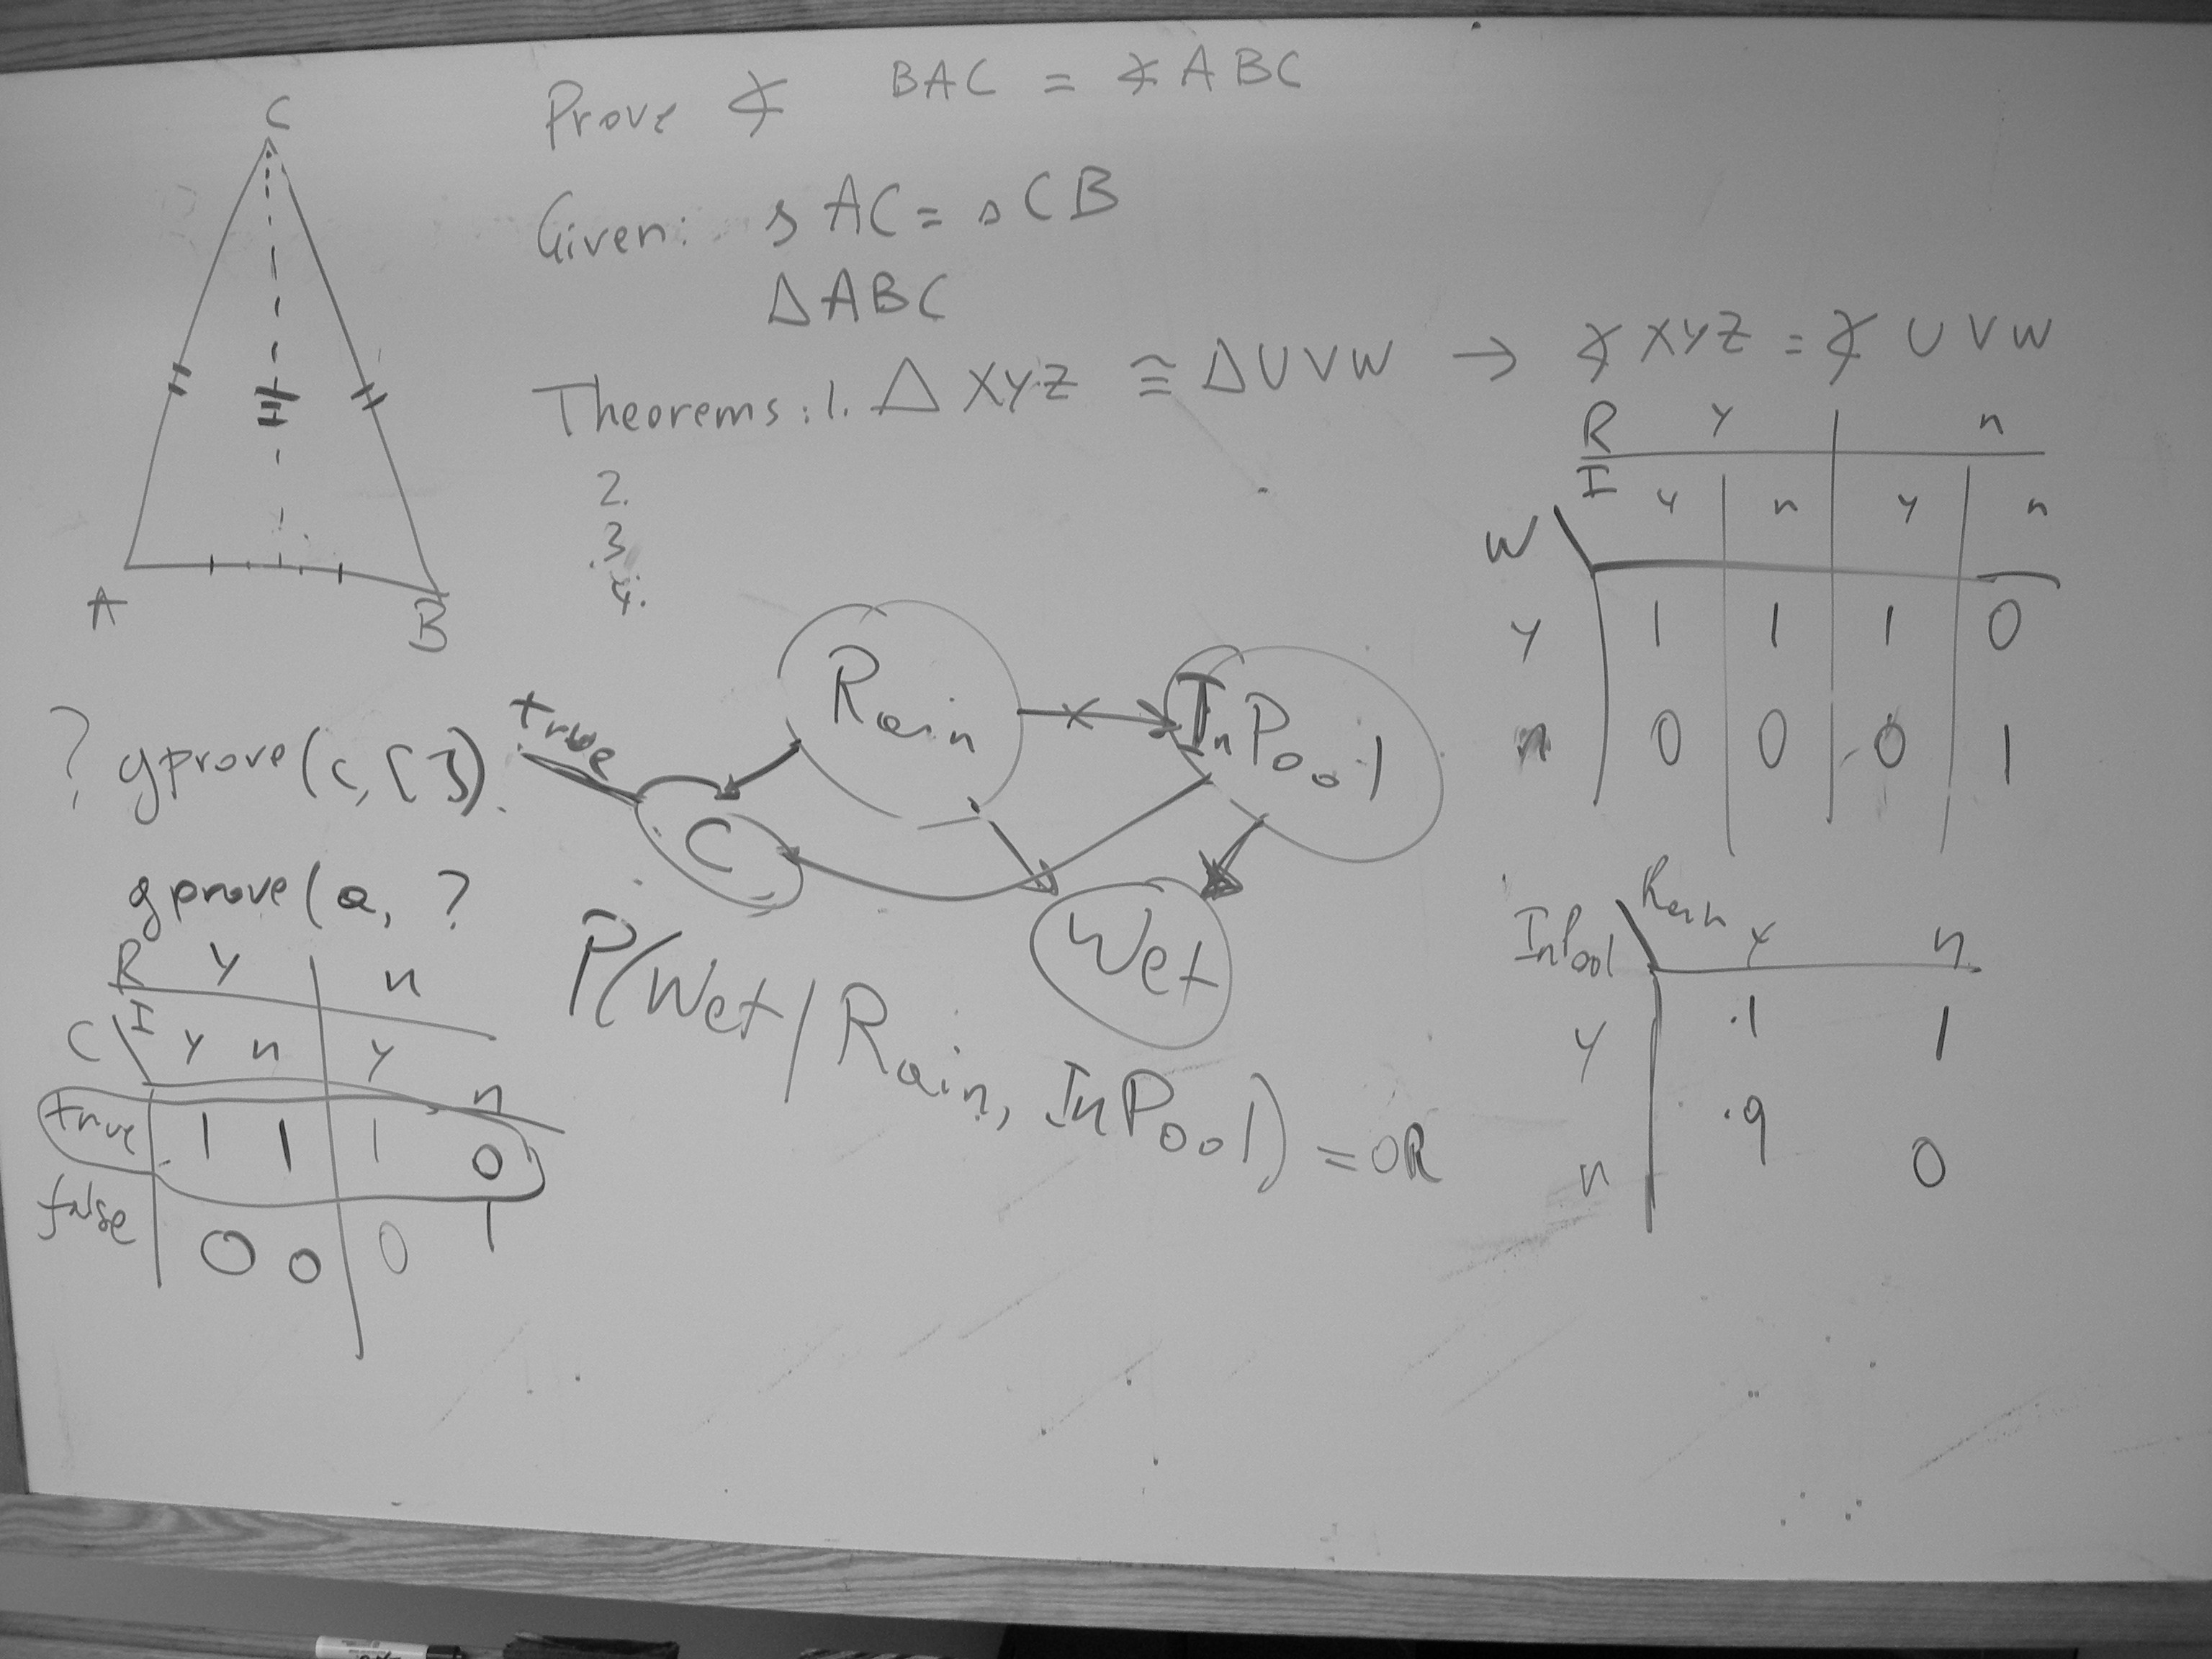 C
A
B
Prove ∡ BAC = ∡ ABC
Given: s AC = s CB
△ABC
Theorems: 1. △ XYZ ≅ △UVW → ∡ XYZ = ∡ UVW
2.
3
4.
R y n
I y n y n
W
y 1 1 1 0
n 0 0 0 1
? gprove(c, []).
gprove(a, ?
true
Rain
InPool
C
Wet
P(Wet/Rain, InPool) = OR
R y n
I y n y n
C
true 1 1 1 0
false 0 0 0 1
Rain
InPool y n
y .1 1
n .9 0